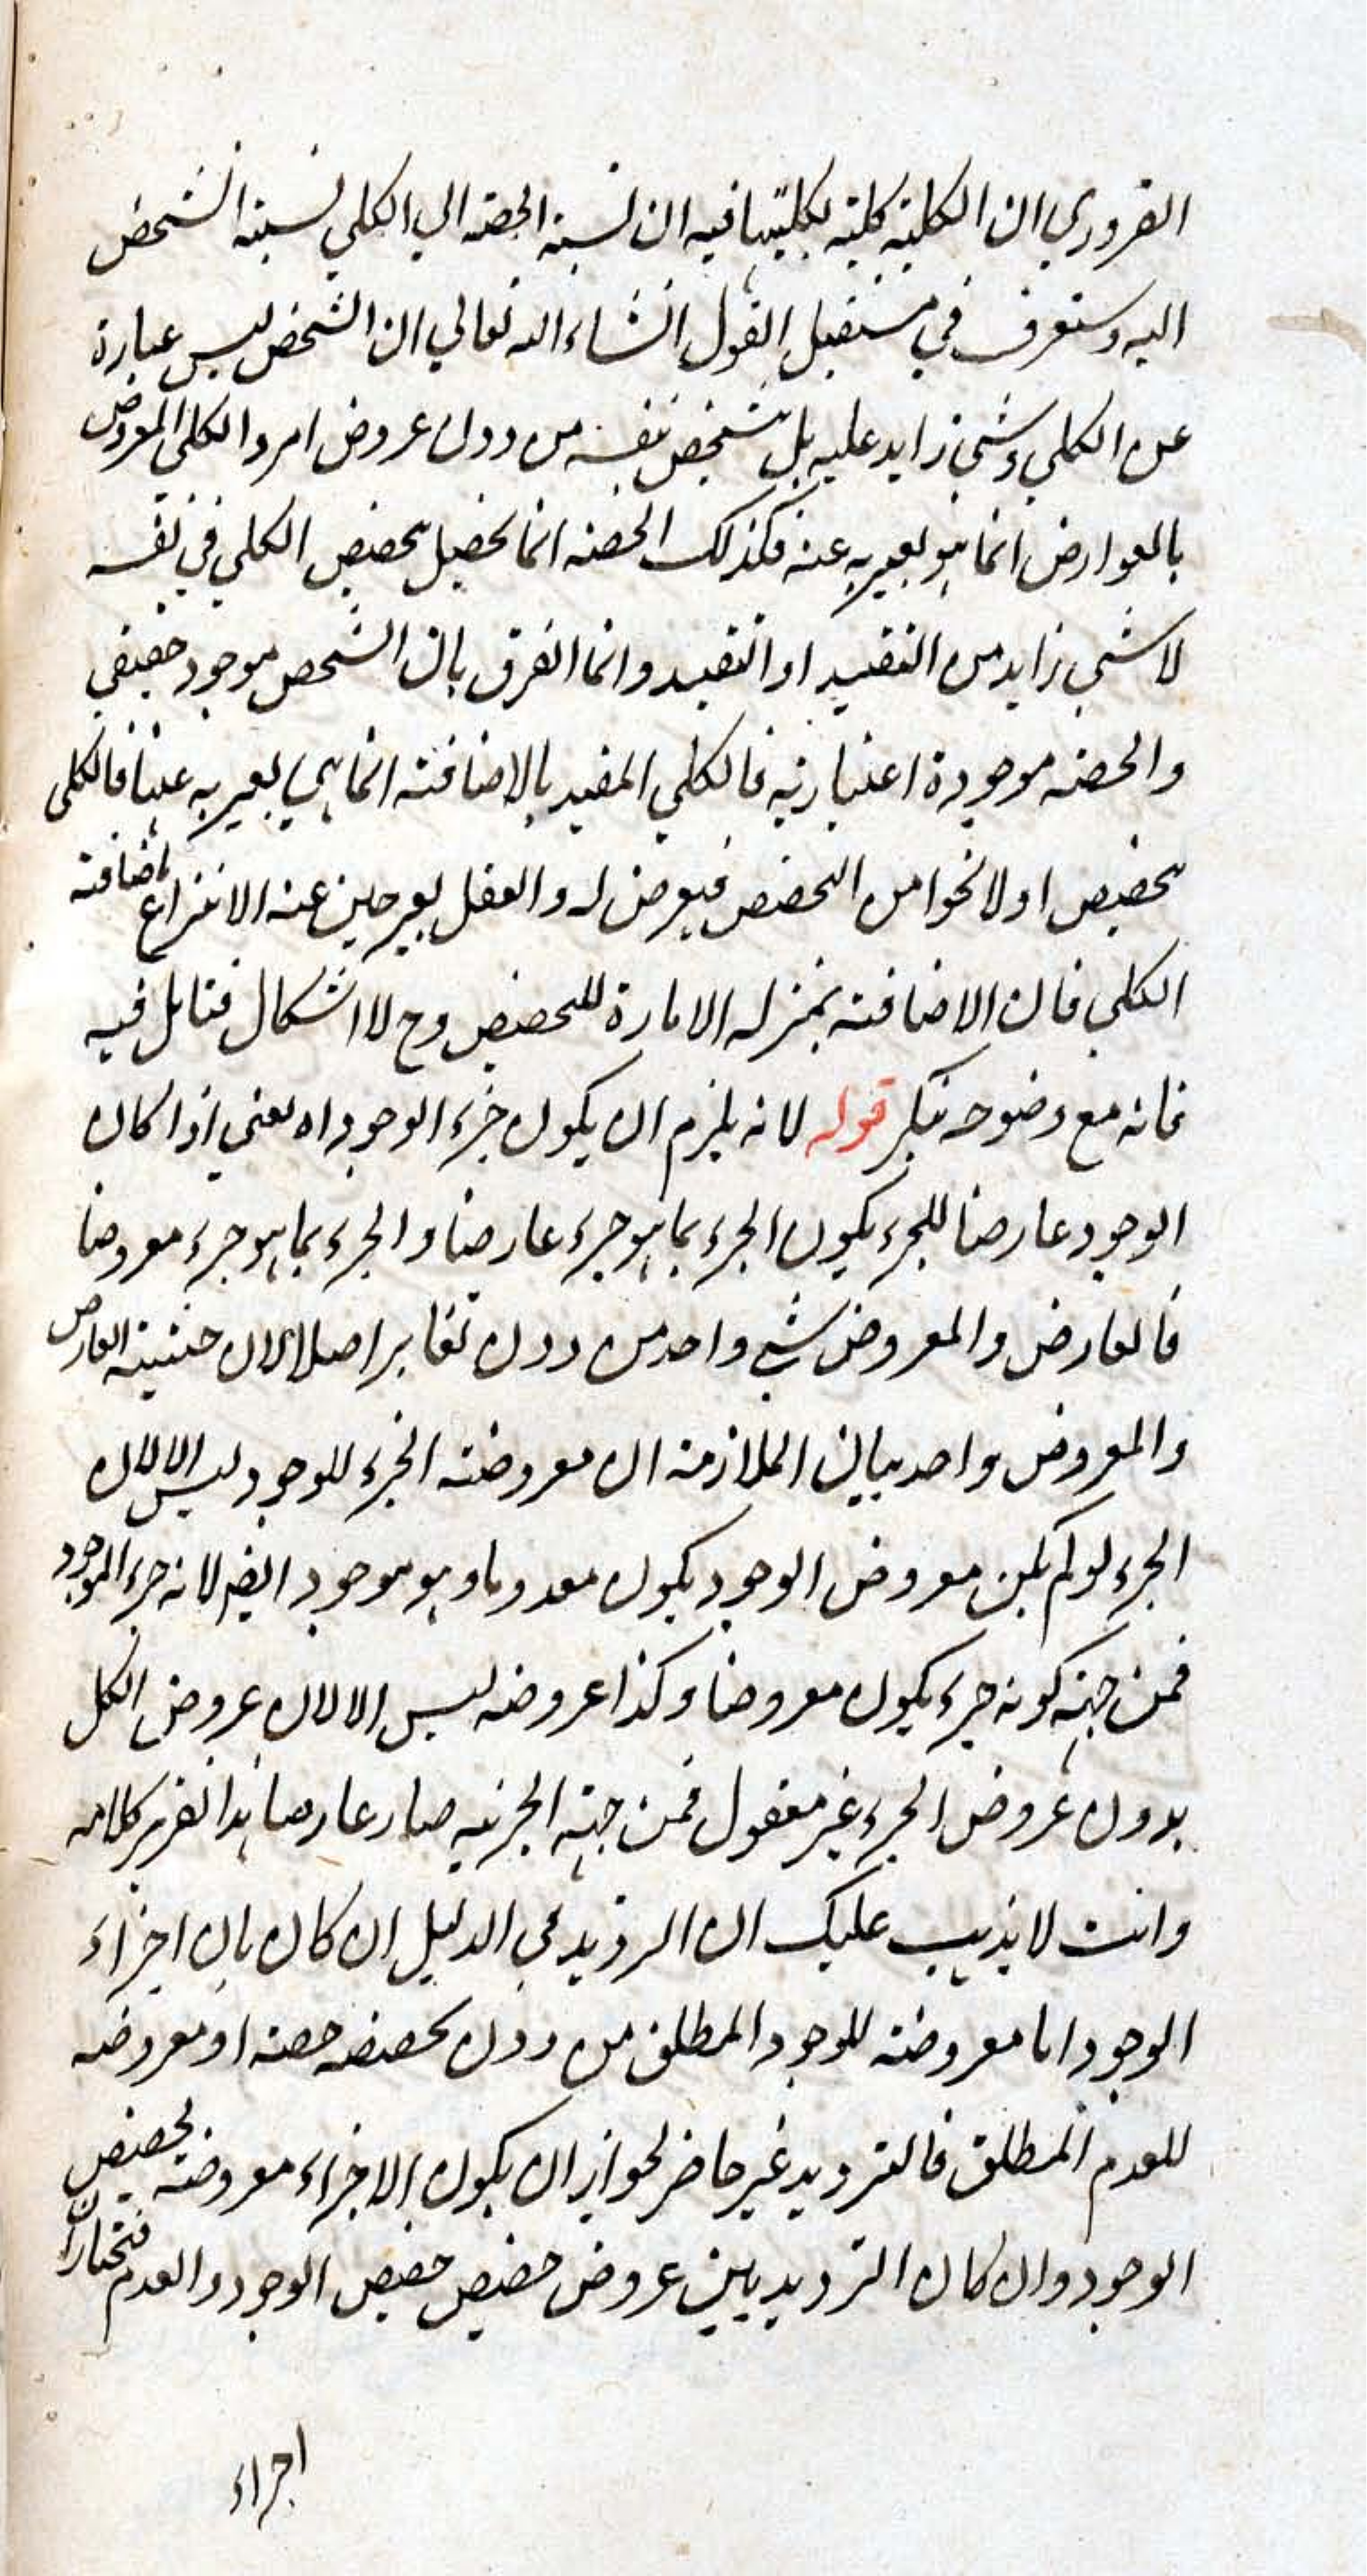 الضروري ان الكلية كلية بكليتها فيه ان نسبة الحصة الي الكلي نسبة الشخص
اليه وستعرف في مستقبل القول انشاء الله تعالي ان الشخص ليس عبارة
عن الكلي وشي زايد عليه بل شخص بنفسه من دون عروض امر والكلي المعروض
بالعوارض انما هو يعبر به عنه فكذلك الحصة انما تحصيل تحصص الكلي في نفسه
لا شي زايد من التقييد او التقيد وانما الفرق بان الشخص موجود حقيقي
والحصة موجودة اعتبارية فالكلي المقيد بالاضافة انما هي يعبر به عنها فالكلي
تحصيص اولا نحوا من التحصص فيعرض له والعقل يعبر حين عنه الانتزاع باضافة
الكلي فان الاضافة بمنزله الامارة للتحصيص وح لا اشكال فتامل فيه
فانه مع وضوحه قوله لانه يلزم ان يكون جزء الوجود اه يعني اذا كان
الوجود عارضا للجزء يكون الجزء بما هو جزء عارضا والجزء بما هو جزء معروضا
فالعارض والمعروض شي واحد من دون تغاير اصلا لان حيثية العارض
والمعروض واحد بيان الملازمة ان معروضية الجزء للوجود ليس الا لان
الجزء لو لم يكن معروض الوجود يكون معدوما وهو موجود ايضا لانه جزء الموجود
فمن جهة كونه جزء يكون معروضا وكذا عروضه ليس الا لان عروض الكل
بدون عروض الجزء غير معقول فمن جهة الجزئيه صار عارضا هذا تقرير كلامه
وانت لا يذهب عليك ان الترديد في الدليل ان كان بان اجزاء
الوجود اما معروضة للوجود المطلق من دون تحصصه حصة او معروضه
للعدم المطلق فالترديد غير حاصر لجواز ان يكون الاجزاء معروضة لحصص
الوجود وان كان الترديد بين عروض حصص الوجود والعدم فنختار ان
اجزاء